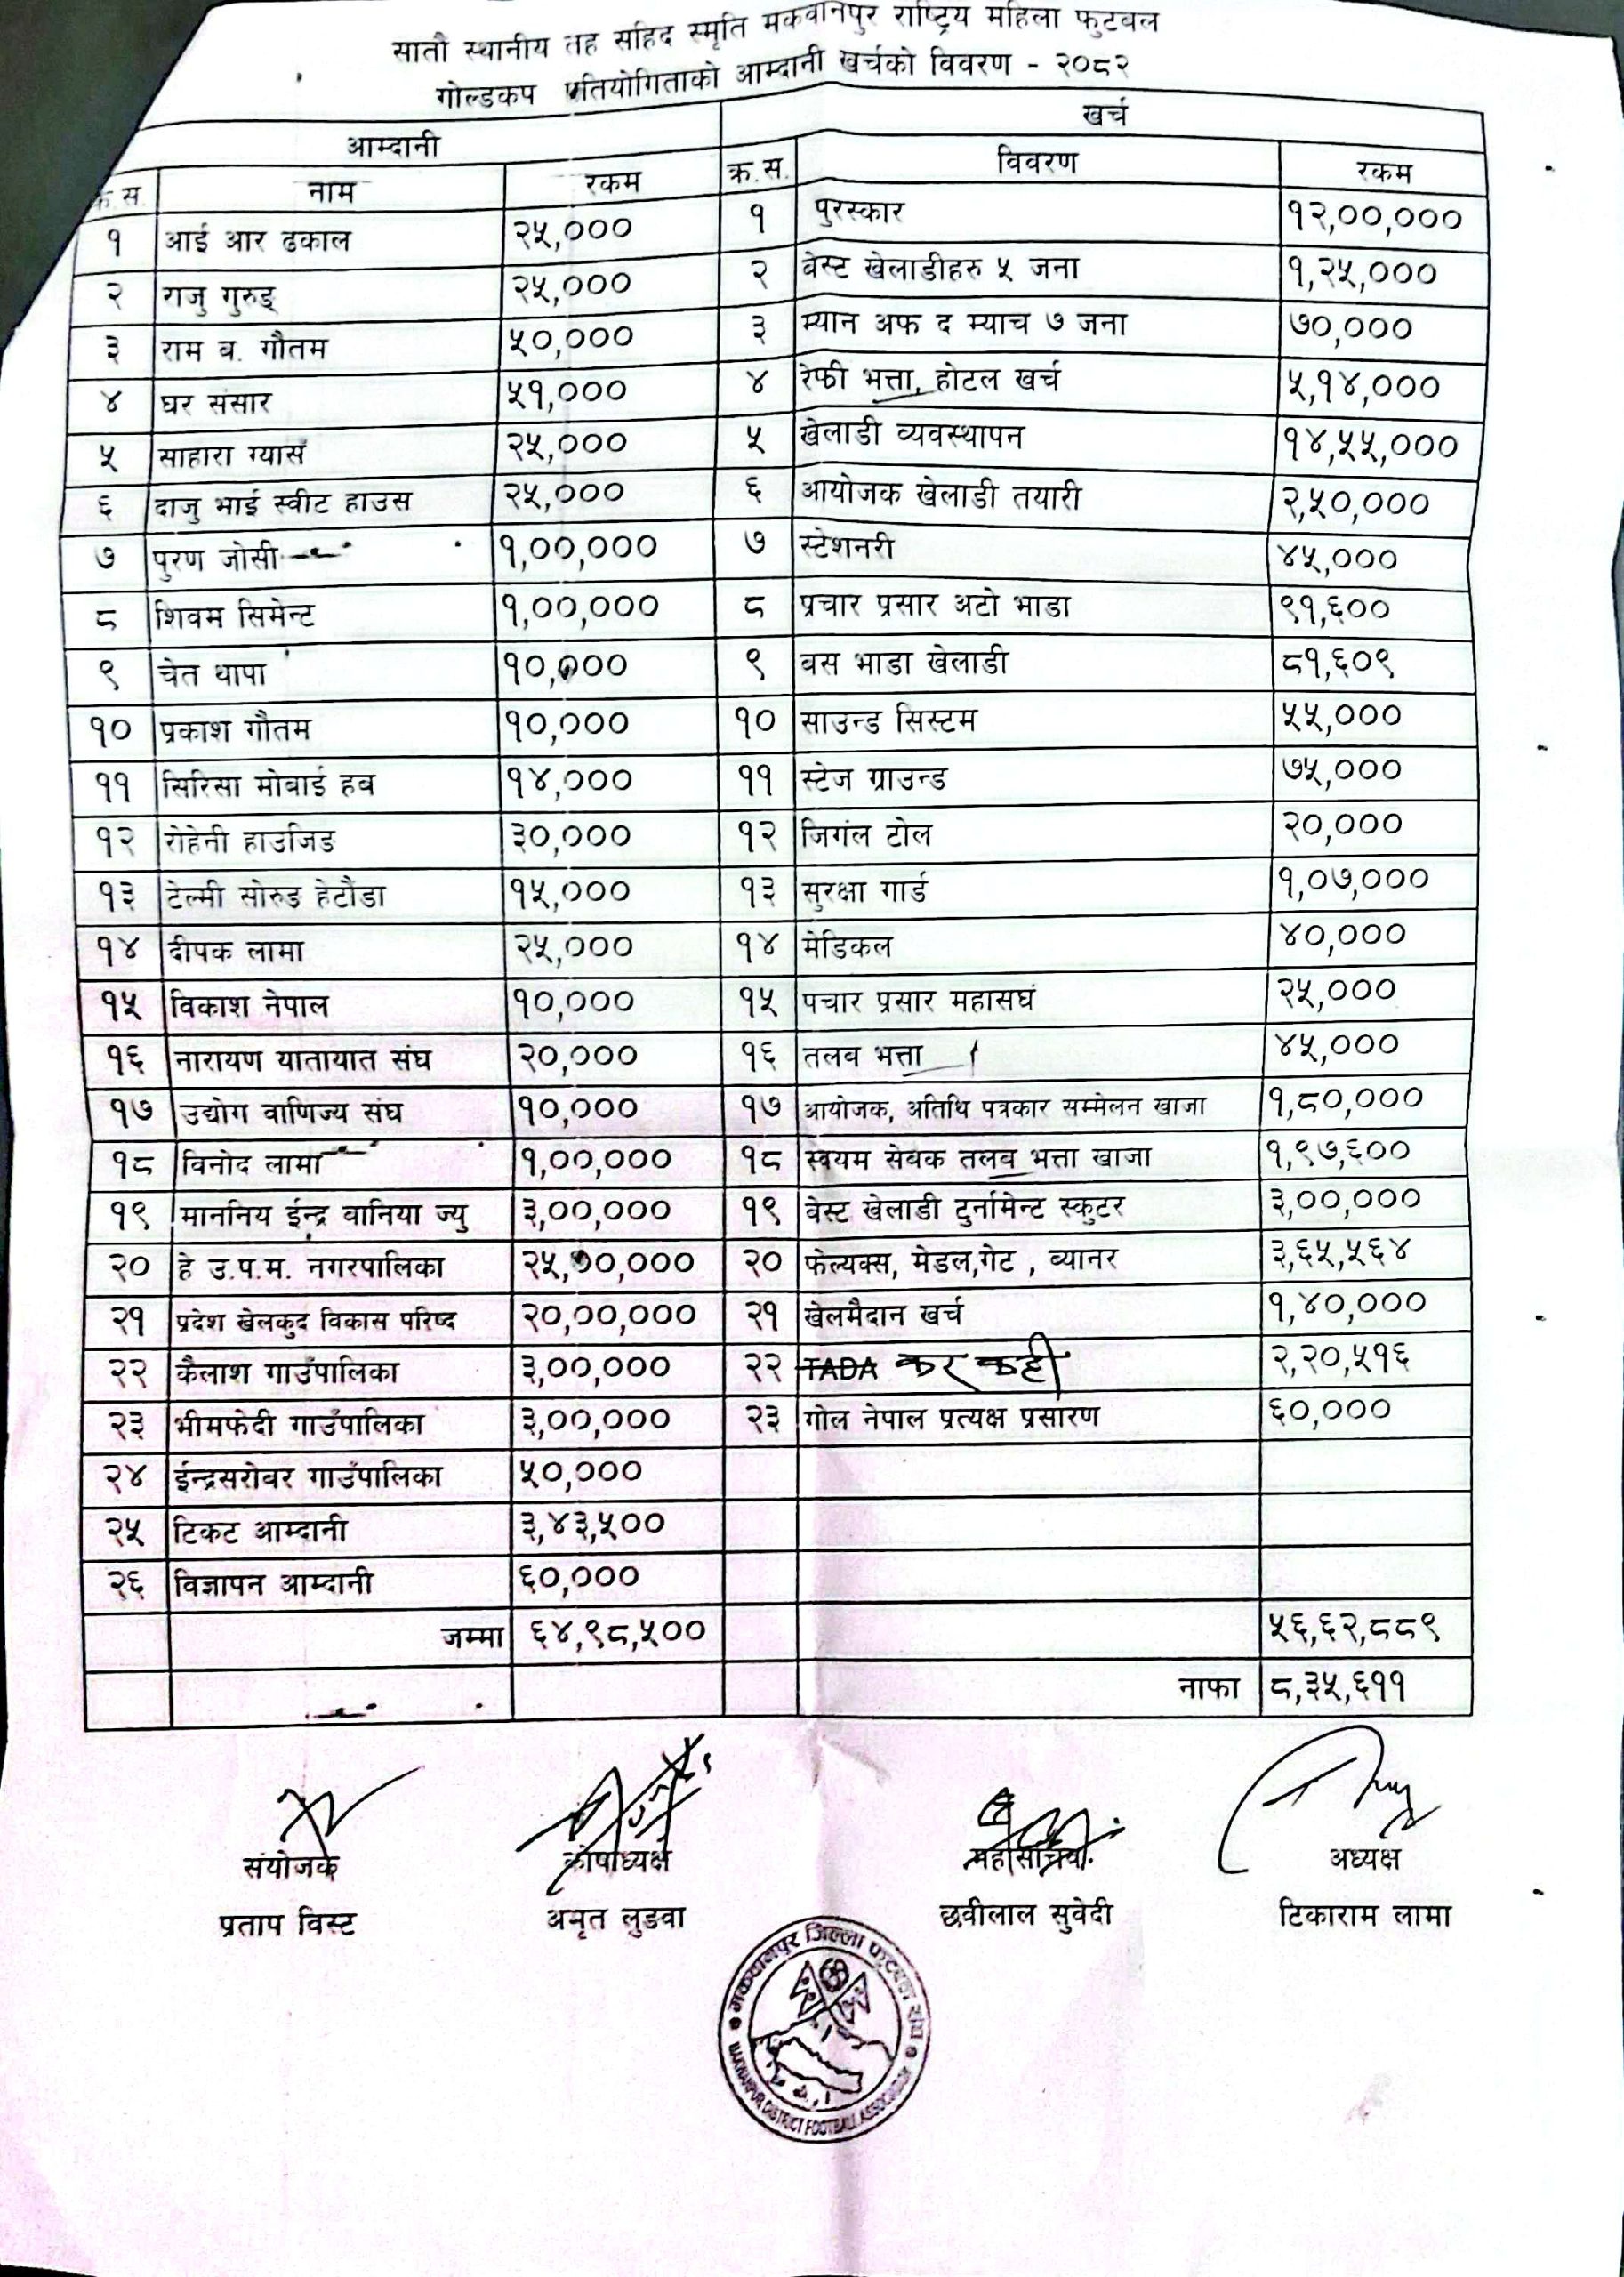 सातौ स्थानीय तह सहिद स्मृति मकवानपुर राष्ट्रिय महिला फुटबल
गोल्डकप प्रतियोगिताको आम्दानी खर्चको विवरण - २०८२
आम्दानी खर्च
क.स. नाम रकम क.स. विवरण रकम
१ आई आर ढकाल २५,००० १ पुरस्कार १२,००,०००
२ राजु गुरुङ् २५,००० २ बेस्ट खेलाडीहरु ५ जना १,२५,०००
३ राम ब. गौतम ५०,००० ३ म्यान अफ द म्याच ७ जना ७०,०००
४ घर संसार ५१,००० ४ रेफ्री भत्ता, होटल खर्च ५,१४,०००
५ साहारा ग्यास २५,००० ५ खेलाडी व्यवस्थापन १४,५५,०००
६ दाजु भाई स्वीट हाउस २५,००० ६ आयोजक खेलाडी तयारी २,५०,०००
७ पुरण जोसी १,००,००० ७ स्टेशनरी ४५,०००
८ शिवम सिमेन्ट १,००,००० ८ प्रचार प्रसार अटो भाडा ९१,६००
९ चेत थापा १०,००० ९ बस भाडा खेलाडी ८१,६०९
१० प्रकाश गौतम १०,००० १० साउन्ड सिस्टम ५५,०००
११ सिरिसा मोबाई हब १४,००० ११ स्टेज ग्राउन्ड ७५,०००
१२ रोहेनी हाउजिङ ३०,००० १२ जिगंल टोल २०,०००
१३ टेल्मी सोरुङ हेटौडा १५,००० १३ सुरक्षा गार्ड १,०७,०००
१४ दीपक लामा २५,००० १४ मेडिकल ४०,०००
१५ विकाश नेपाल १०,००० १५ पचार प्रसार महासघं २५,०००
१६ नारायण यातायात संघ २०,००० १६ तलब भत्ता ४५,०००
१७ उद्योग वाणिज्य संघ १०,००० १७ आयोजक, अतिथि पत्रकार सम्मेलन खाजा १,८०,०००
१८ विनोद लामा १,००,००० १८ स्वयम सेवक तलब भत्ता खाजा १,९७,६००
१९ माननिय ईन्द्र वानिया ज्यु ३,००,००० १९ बेस्ट खेलाडी टुर्नामेन्ट स्कुटर ३,००,०००
२० हे उ.प.म. नगरपालिका २५,००,००० २० फेल्यक्स, मेडल,गेट , ब्यानर ३,६५,५६४
२१ प्रदेश खेलकुद विकास परिष्द २०,००,००० २१ खेलमैदान खर्च १,४०,०००
२२ कैलाश गाउँपालिका ३,००,००० २२ TADA कर कट्टी २,२०,५१६
२३ भीमफेदी गाउँपालिका ३,००,००० २३ गोल नेपाल प्रत्यक्ष प्रसारण ६०,०००
२४ ईन्द्रसरोबर गाउँपालिका ५०,०००
२५ टिकट आम्दानी ३,४३,५००
२६ विज्ञापन आम्दानी ६०,०००
जम्मा ६४,९८,५०० ५६,६२,८८९
नाफा ८,३५,६११
संयोजक कोषाध्यक्ष महासचिव अध्यक्ष
प्रताप विस्ट अमृत लुङवा छवीलाल सुवेदी टिकाराम लामा
मकवानपुर जिल्ला फुटबल संघ
MAKWANPUR DISTRICT FOOTBALL ASSOCIATION